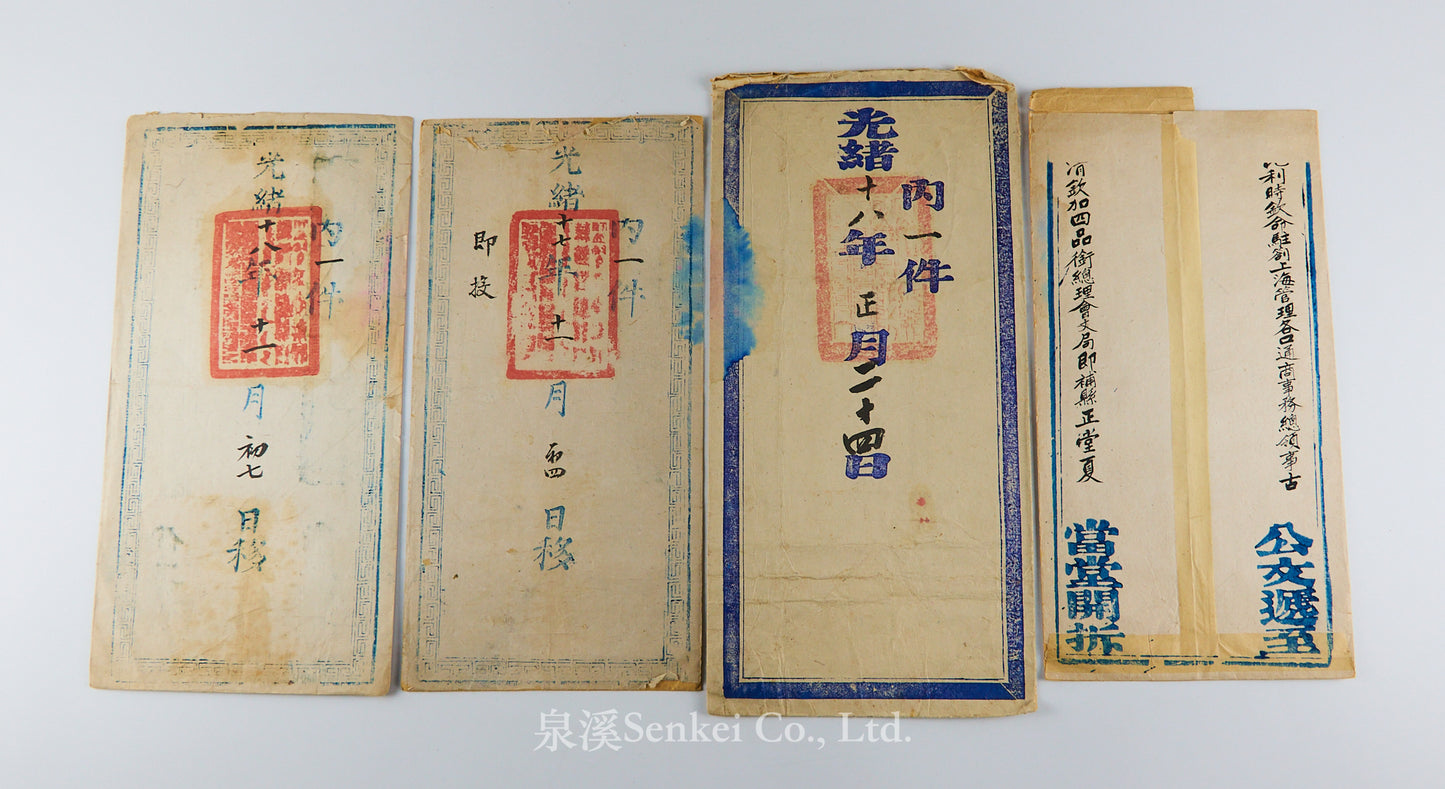 光緒十八年十一月初七日移
內一件
光緒十七年十一月初四日移
內一件
即投
光緒十八年正月二十四日
內一件
利時欽命駐劄上海管理各口通商事務總領事古
公文遞至
欽加四品銜總理會文局即補縣正堂夏
當堂開拆
泉溪Senkei Co., Ltd.